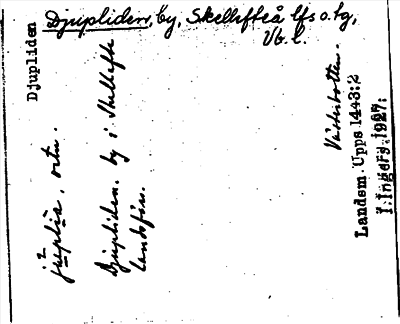 Djupliden, by, Skellefteå lfs o. tg,
Vb. l.
Djupliden
ortn.
Djupliden. by i Skellefte
landsförs.
Västerbotten.
Landsm. Upps 1443:2
1927.